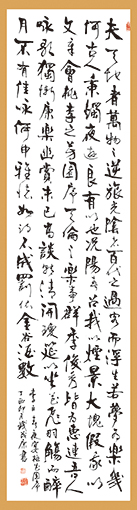 夫天地者萬物之逆旅光陰者百代之過客而浮生若夢為歡幾
何古人秉燭夜遊良有以也況陽春召我以煙景大塊假我以
文章會桃李之芳園序天倫之樂事群季俊秀皆為惠連吾人
詠歌獨慚康樂幽賞未已高談轉清開瓊筵以坐花飛羽觴而醉
月不有佳詠何申雅懷如詩不成罰依金谷酒數
李白春夜宴桃李園序
丁酉